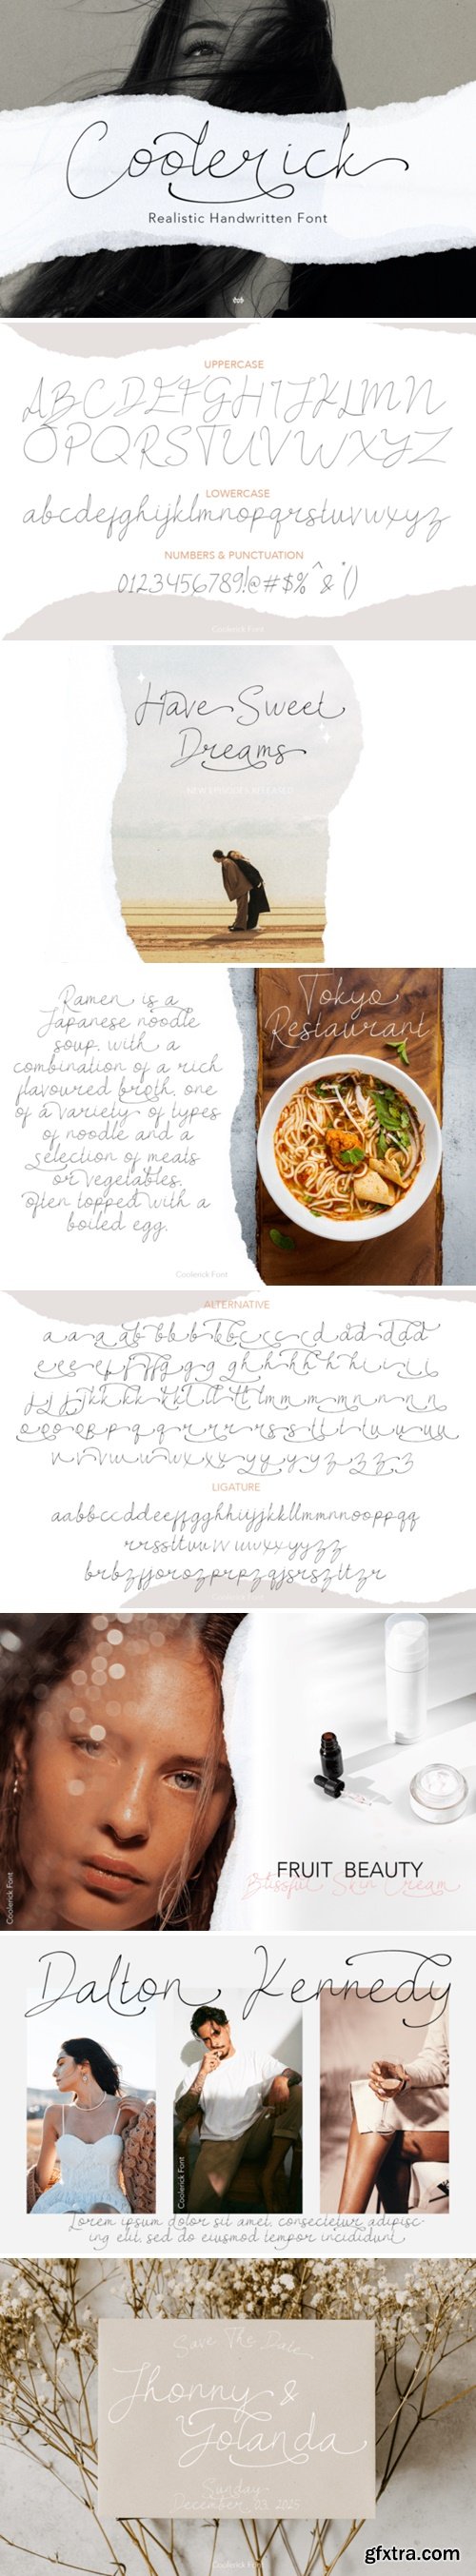 Coolerick
Realistic Handwritten Font
UPPERCASE
ABCDEFGHIJKLMN
OPQRSTUVWXYZ
LOWERCASE
abcdefghijklmnopqrstuvwxyz
NUMBERS & PUNCTUATION
0123456789!@#$%^&*()
Coolerick Font
Have Sweet
Dreams
NEW EPISODES RELEASED
Ramen is a
Japanese noodle
soup, with a
combination of a rich
flavoured broth, one
of a variety of types
of noodle and a
selection of meats
or vegetables,
often topped with a
boiled egg.
Tokyo
Restaurant
Coolerick Font
ALTERNATIVE
LIGATURE
Coolerick Font
FRUIT BEAUTY
Blissful Skin Cream
Coolerick Font
Dalton Kennedy
Coolerick Font
Lorem ipsum dolor sit amet, consectetur adipisc-
ing elit, sed do eiusmod tempor incididunt
Save The Date
Jhonny &
Yolanda
Sunday,
December, 03, 2025
Coolerick Font
gfxtra.com